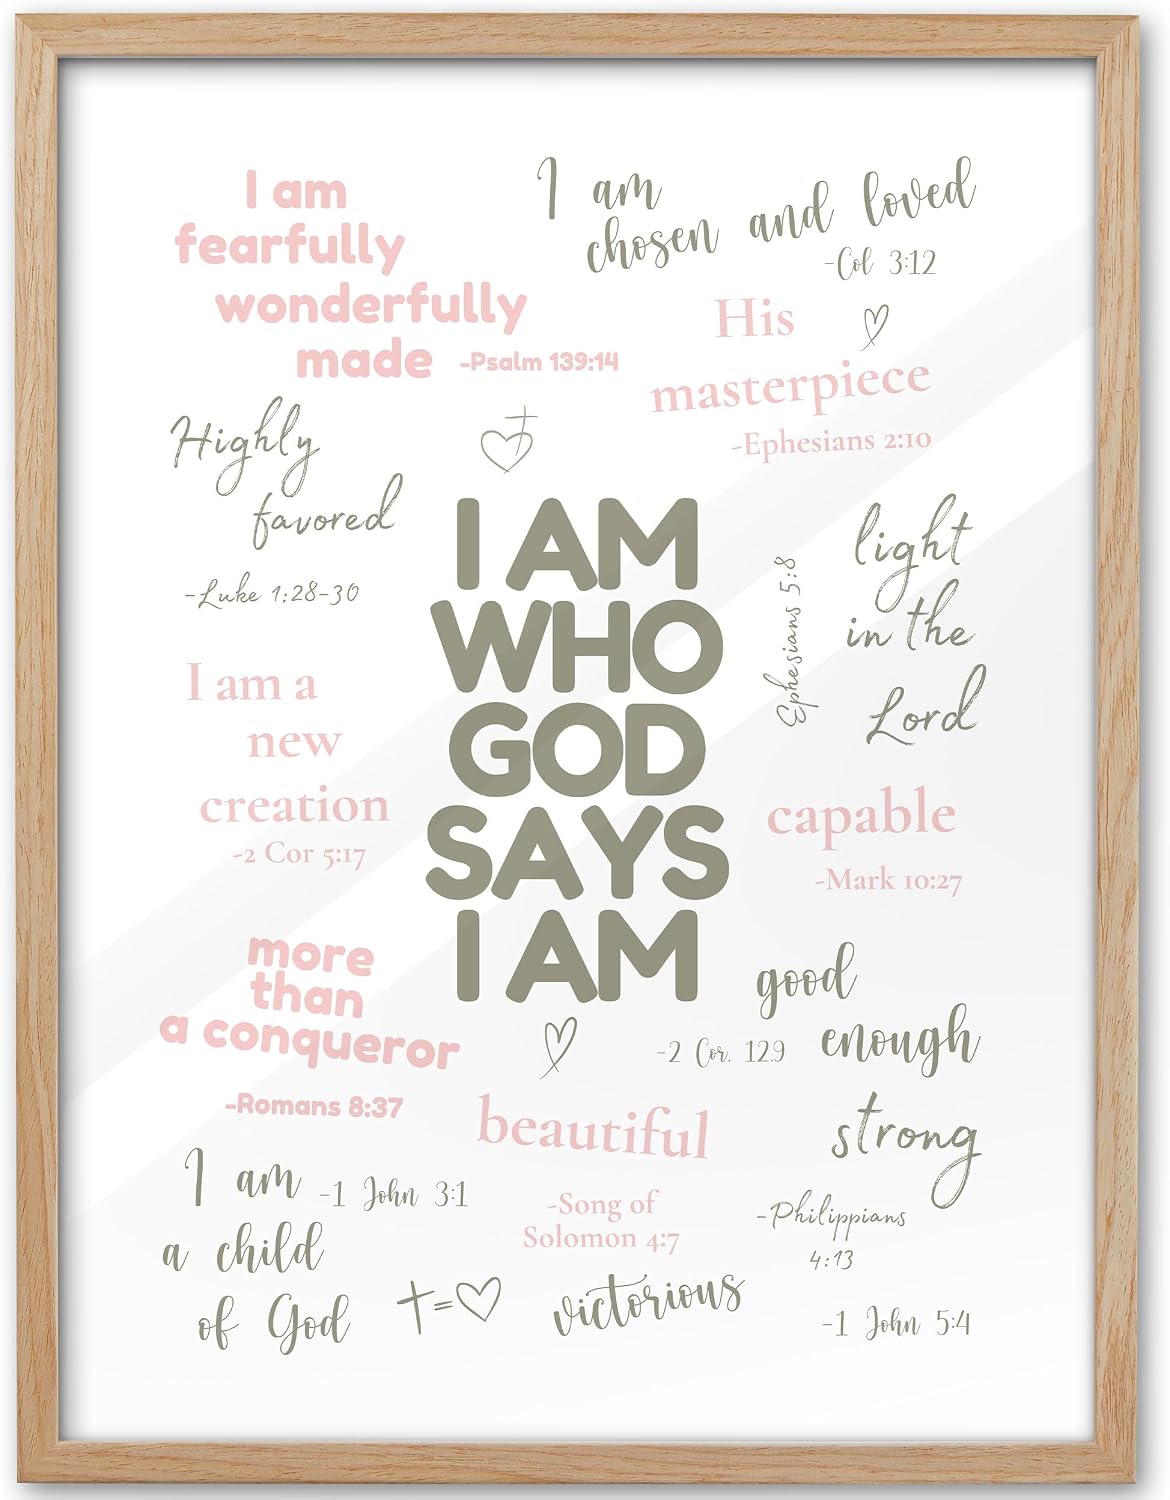 I am
fearfully
wonderfully
made -Psalm 139:14
I am
chosen and loved
-Col 3:12
His
masterpiece
-Ephesians 2:10
Highly
favored
-Luke 1:28-30
I AM
WHO
GOD
SAYS
I AM
light
in the
Lord
Ephesians 5:8
I am a
new
creation
-2 Cor 5:17
capable
-Mark 10:27
more
than
a conqueror
-Romans 8:37
good
enough
-2 Cor. 12.9
beautiful
-Song of
Solomon 4:7
strong
-Philippians
4:13
I am -1 John 3:1
a child
of God
=
victorious
-1 John 5:4